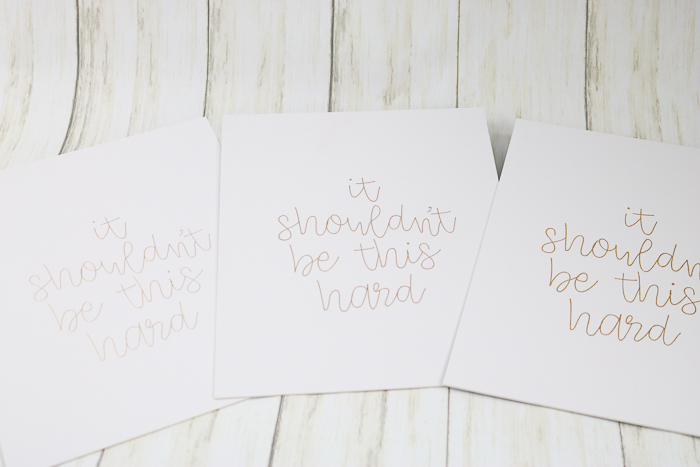 it
shouldn't
be this
hard
it
shouldn't
be this
hard
it
shouldn
be this
hard